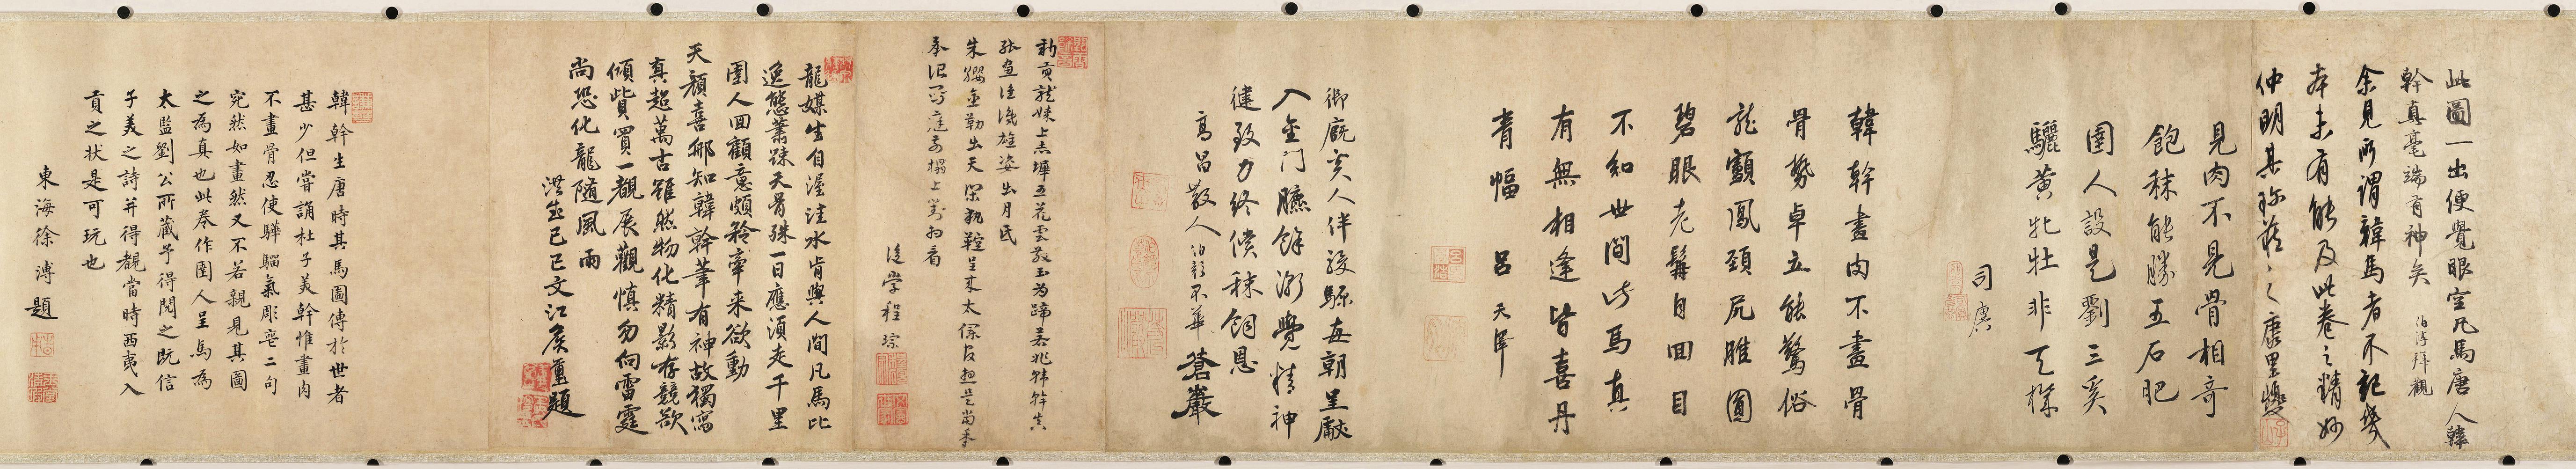 此圖一出便覺眼空凡馬唐人韓
幹真毫端有神矣
伯淳拜觀
余見所謂韓馬者不記幾
本未有能及此卷之精妙
仲明其珍藏之康里巎
見肉不見骨相奇
飽秣能勝五石肥
圉人設是劉三奚
驪黃牝牡非天機
司庾
韓幹畫肉不畫骨
骨勢卓立能驚俗
龍顱鳳頸尻雕圓
碧眼老髯自回目
不知世間此馬真
有無相逢皆喜丹
青幅
呂天澤
御廐奚人伴綬驅每朝呈獻
入金門臕餘漸覺精神
健致力終償秣飼恩
高昌散人伯顏不華蒼巖
勑貢龍媒上赤墀五花雲散玉為蹄若非韓幹真
張意注識雄姿出月氐
朱纓金勒出天閑執鞚呈來太僕官想是當年
承沼寫進御榻上對相看
後學程琮
龍媒生自渥洼水肯與人間凡馬比
逸態蕭疎天骨殊一日應須走千里
圉人回顧意頗矜牽来欲動
天顏喜那知韓幹筆有神故獨寫
真超萬古雖然物化精影存競欲
傾貲買一觀展觀慎勿向雷霆
尚恐化龍随風雨
洪武己巳文江矦重題
韓幹生唐時其馬圖傳於世者
甚少但嘗誦杜子美幹惟畫肉
不畫骨忍使驊騮氣彫喪二句
宛然如畫然又不若親見其圖
之為真也此卷作圉人呈馬為
太監劉公所藏予得閱之既信
子美之詩并得覩當時西夷入
貢之状是可玩也
東海徐溥題